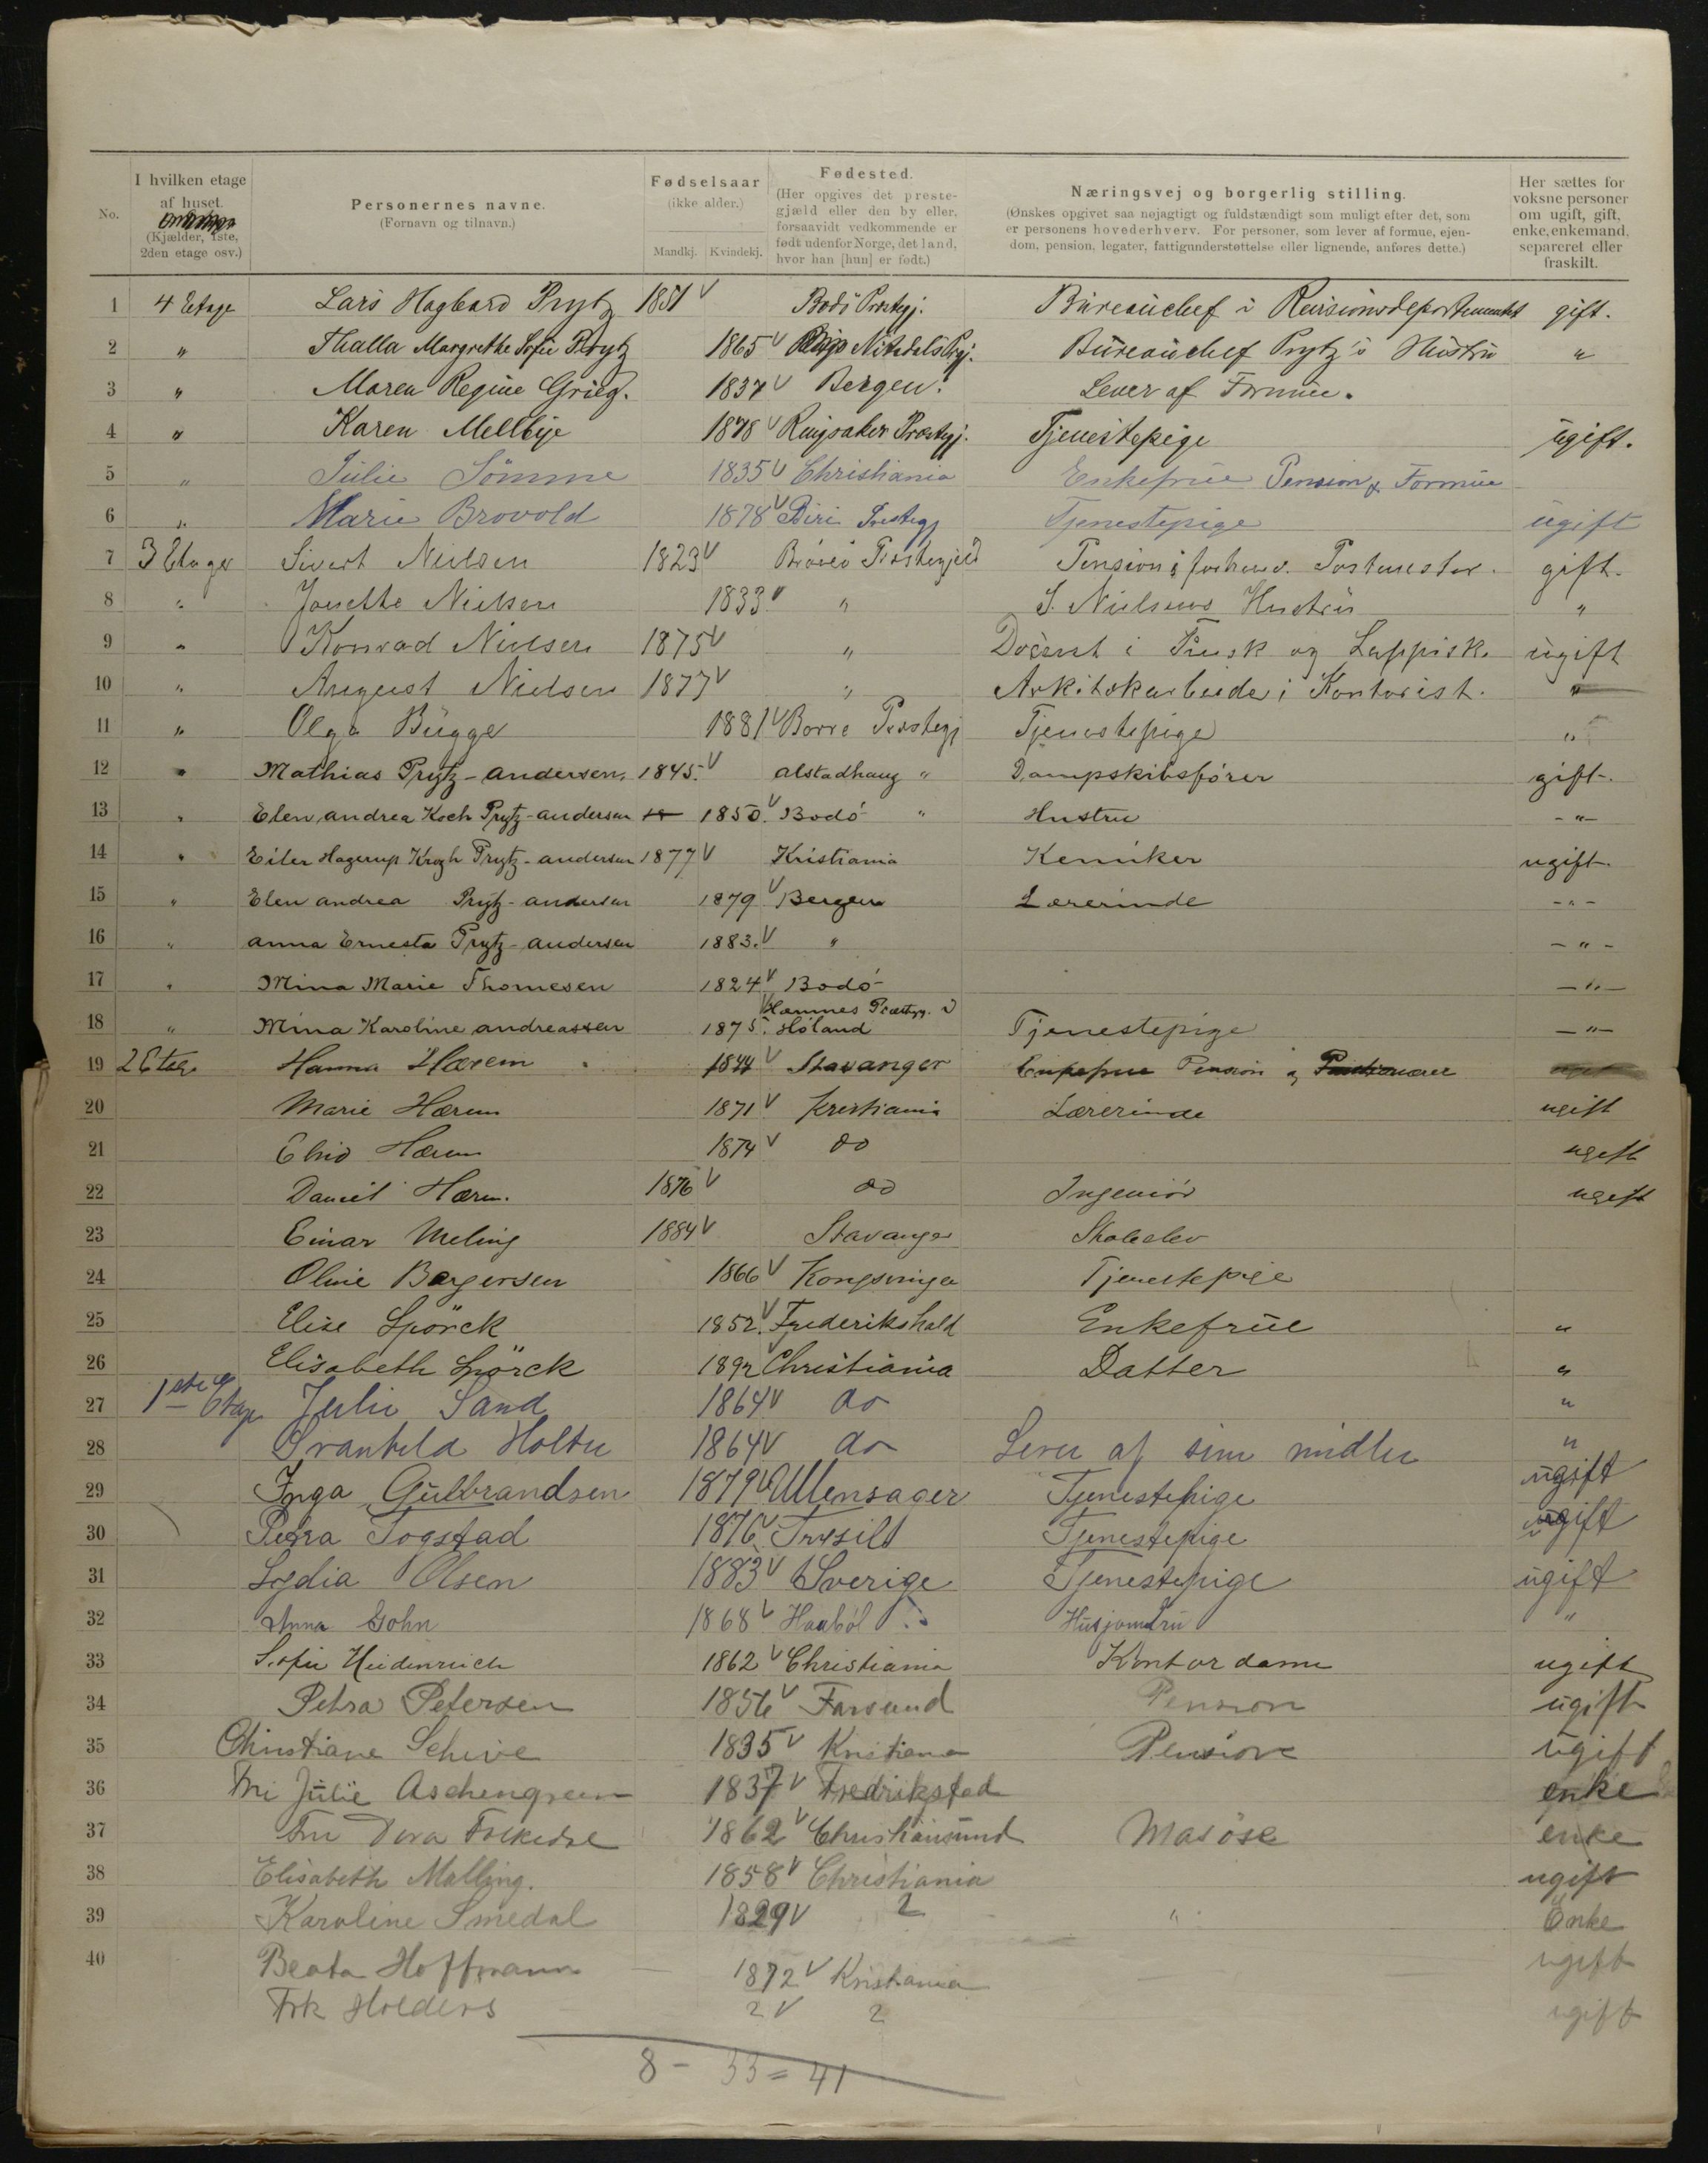 No.
I hvilken etage af huset. (Kjælder, 1ste, 2den etage osv.)
Personernes navne. (Fornavn og tilnavn.)
Fødselsaar (ikke alder.) Mandkj. Kvindekj.
Fødested. (Her opgives det prestegjæld eller den by eller, forsaavidt vedkommende er født udenfor Norge, det land, hvor han [hun] er født.)
Næringsvej og borgerlig stilling. (Ønskes opgivet saa nøjagtigt og fuldstændigt som muligt efter det, som er personens hovederhverv. For personer, som lever af formue, ejendom, pension, legater, fattigunderstøttelse eller lignende, anføres dette.)
Her sættes for voksne personer om ugift, gift, enke, enkemand, separeret eller fraskilt.
1 4 Etage Lars Hagbard Prytz 1851 V Bodö Præstegj. Büreauchef i Revisionsdepartementet gift.
2 " Thalla Margrethe Sofie Prytz 1865 V Nitedals Prgj. Büreauchef Prytz's Hustrü "
3 " Maren Regine Grieg. 1837 V Bergen. Lever af Formüe.
4 " Karen Mellbye 1878 V Ringsaker Præstegj. Tjenestepige ügift.
5 " Jülie Sömme 1835 V Christiania Enkefrüe Pension & Formüe
6 " Marie Brovold 1878 V Biri Prestegj Tjenestepige ügift
7 3 Etager Sivert Nielsen 1823 V Brönö Præstegjeld Pension: forhenv. Postmester. gift.
8 " Jonette Nielsen 1833 V " S. Nielsens Hustrü "
9 " Konrad Nielsen 1875 V " Docent i Finsk og Lappisk. ügift
10 " August Nielsen 1877 V " Arkitekarbeide i Kontorist. "
11 " Olga Bügge 1881 V Borre Præstegj Tjenestepige "
12 " Mathias Prytz-Andersen. 1845. V Alstadhaug " Dampskibsfører gift.
13 " Elen Andrea Koch Prytz-Andersen 1850. V Bodö " Hustru -"-
14 " Eiler Hagerup Krogh Prytz-Andersen 1877 V Kristiania Kemiker ugift.
15 " Elen Andrea Prytz-Andersen 1879 V Bergen Lærerinde -"-
16 " Anna Ernesta Prytz-Andersen 1883. V " -"-
17 " Mina Marie Thomesen 1824 V Bodö -"-
18 " Mina Karoline Andreassen 1875. V Hemnes Præstgj. i Høland Tjenestepige -"-
19 2 Etage Hanna Hærem 1844 V Stavanger Enkefrue Pension og
20 Marie Hærem 1871 V Kristiania Lærerinde ugift
21 Hærem 1874 V do ugift
22 Daniel Hærem. 1876 V do Ingeniör ugift
23 Einar Meling 1884 V Stavanger Skoleelev
24 Oline Borgersen 1866 V Kongsvinger Tjenestepige
25 Elise Spörck 1852. V Frederikshald Enkefrüe "
26 Elisabeth Spörck 1892 Christiania Datter "
27 1ste Etage Julie Sand 1864 V do "
28 Svanhild Holter 1864 V do Lever af sine midler "
29 Inga Gülbrandsen 1879 V Ullensager Tjenestepige ügift
30 Petra Togstad 1876 V Trysild Tjenestepige ugift
31 Lydia Olsen 1883 V Sverige Tjenestepige ügift
32 Anna Gohn 1868 V Haabøl Hüsjomfrü "
33 Sofie Heidenreich 1862 V Christiania Kontordame ugift
34 Petra Petersen 1856 V Farsund Pension ügift
35 Christiane Schive 1835 V Kristiania Pension ügift
36 Fru Jülie Aschengreen 1837 V Fredrikstad enke
37 Fru Dora 1862 V Christiansund Masöse enke
38 Elisabeth Malling. 1858 V Christiania ugift
39 Karoline Smedal 1829 V ? " Enke
40 Beata Hoffmann 1872 V Kristiania ugift
Frk Holders ? V ? ugift
8 - 33 = 41